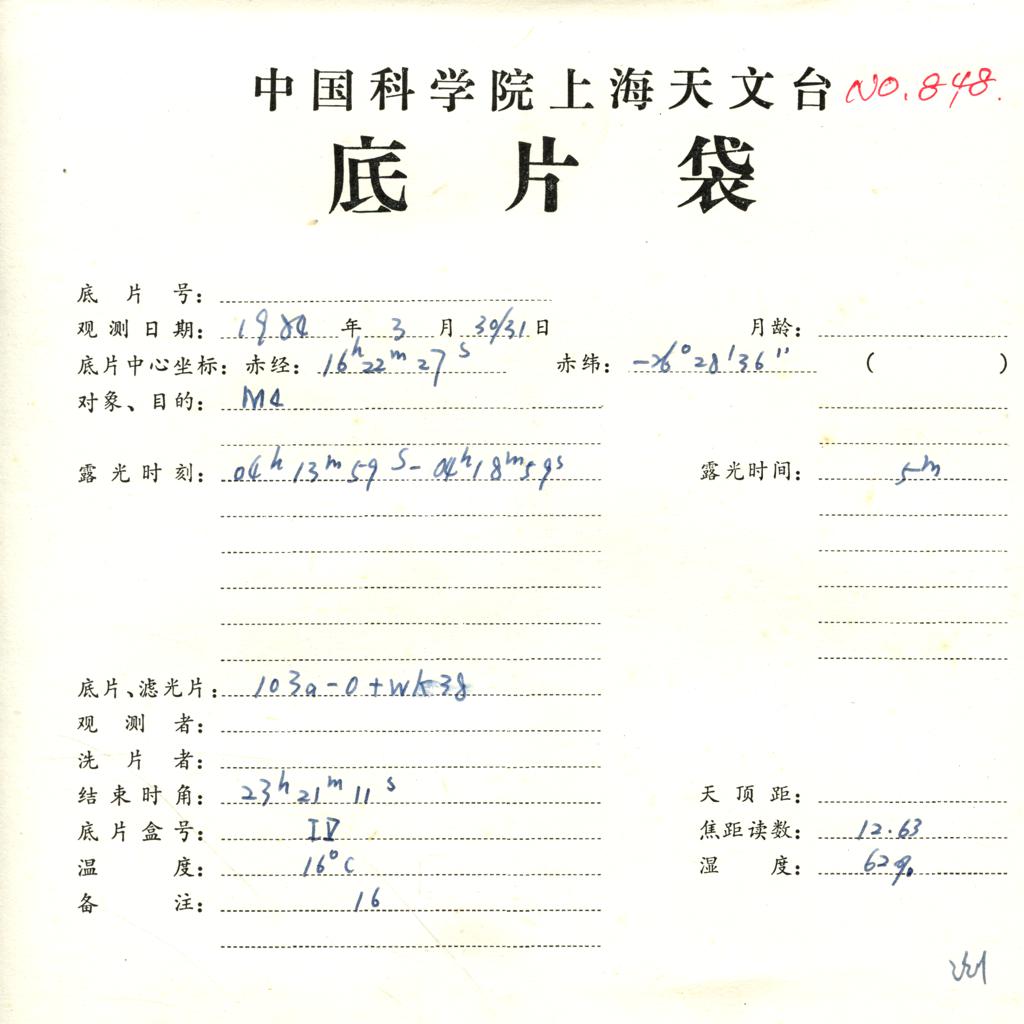 中国科学院上海天文台 NO.848.
底片袋
底片号：
观测日期：1984年3月30/31日 月龄：
底片中心坐标：赤经：16h22m27s 赤纬：-26°28'36" ( )
对象、目的：M4
露光时刻：04h13m59s-04h18m59s 露光时间：5m
底片、滤光片：103a-O+WK38
观测者：
洗片者：
结束时角：23h21m11s 天顶距：
底片盒号：IV 焦距读数：12.63
温度：16°C 湿度：62%
备注：16